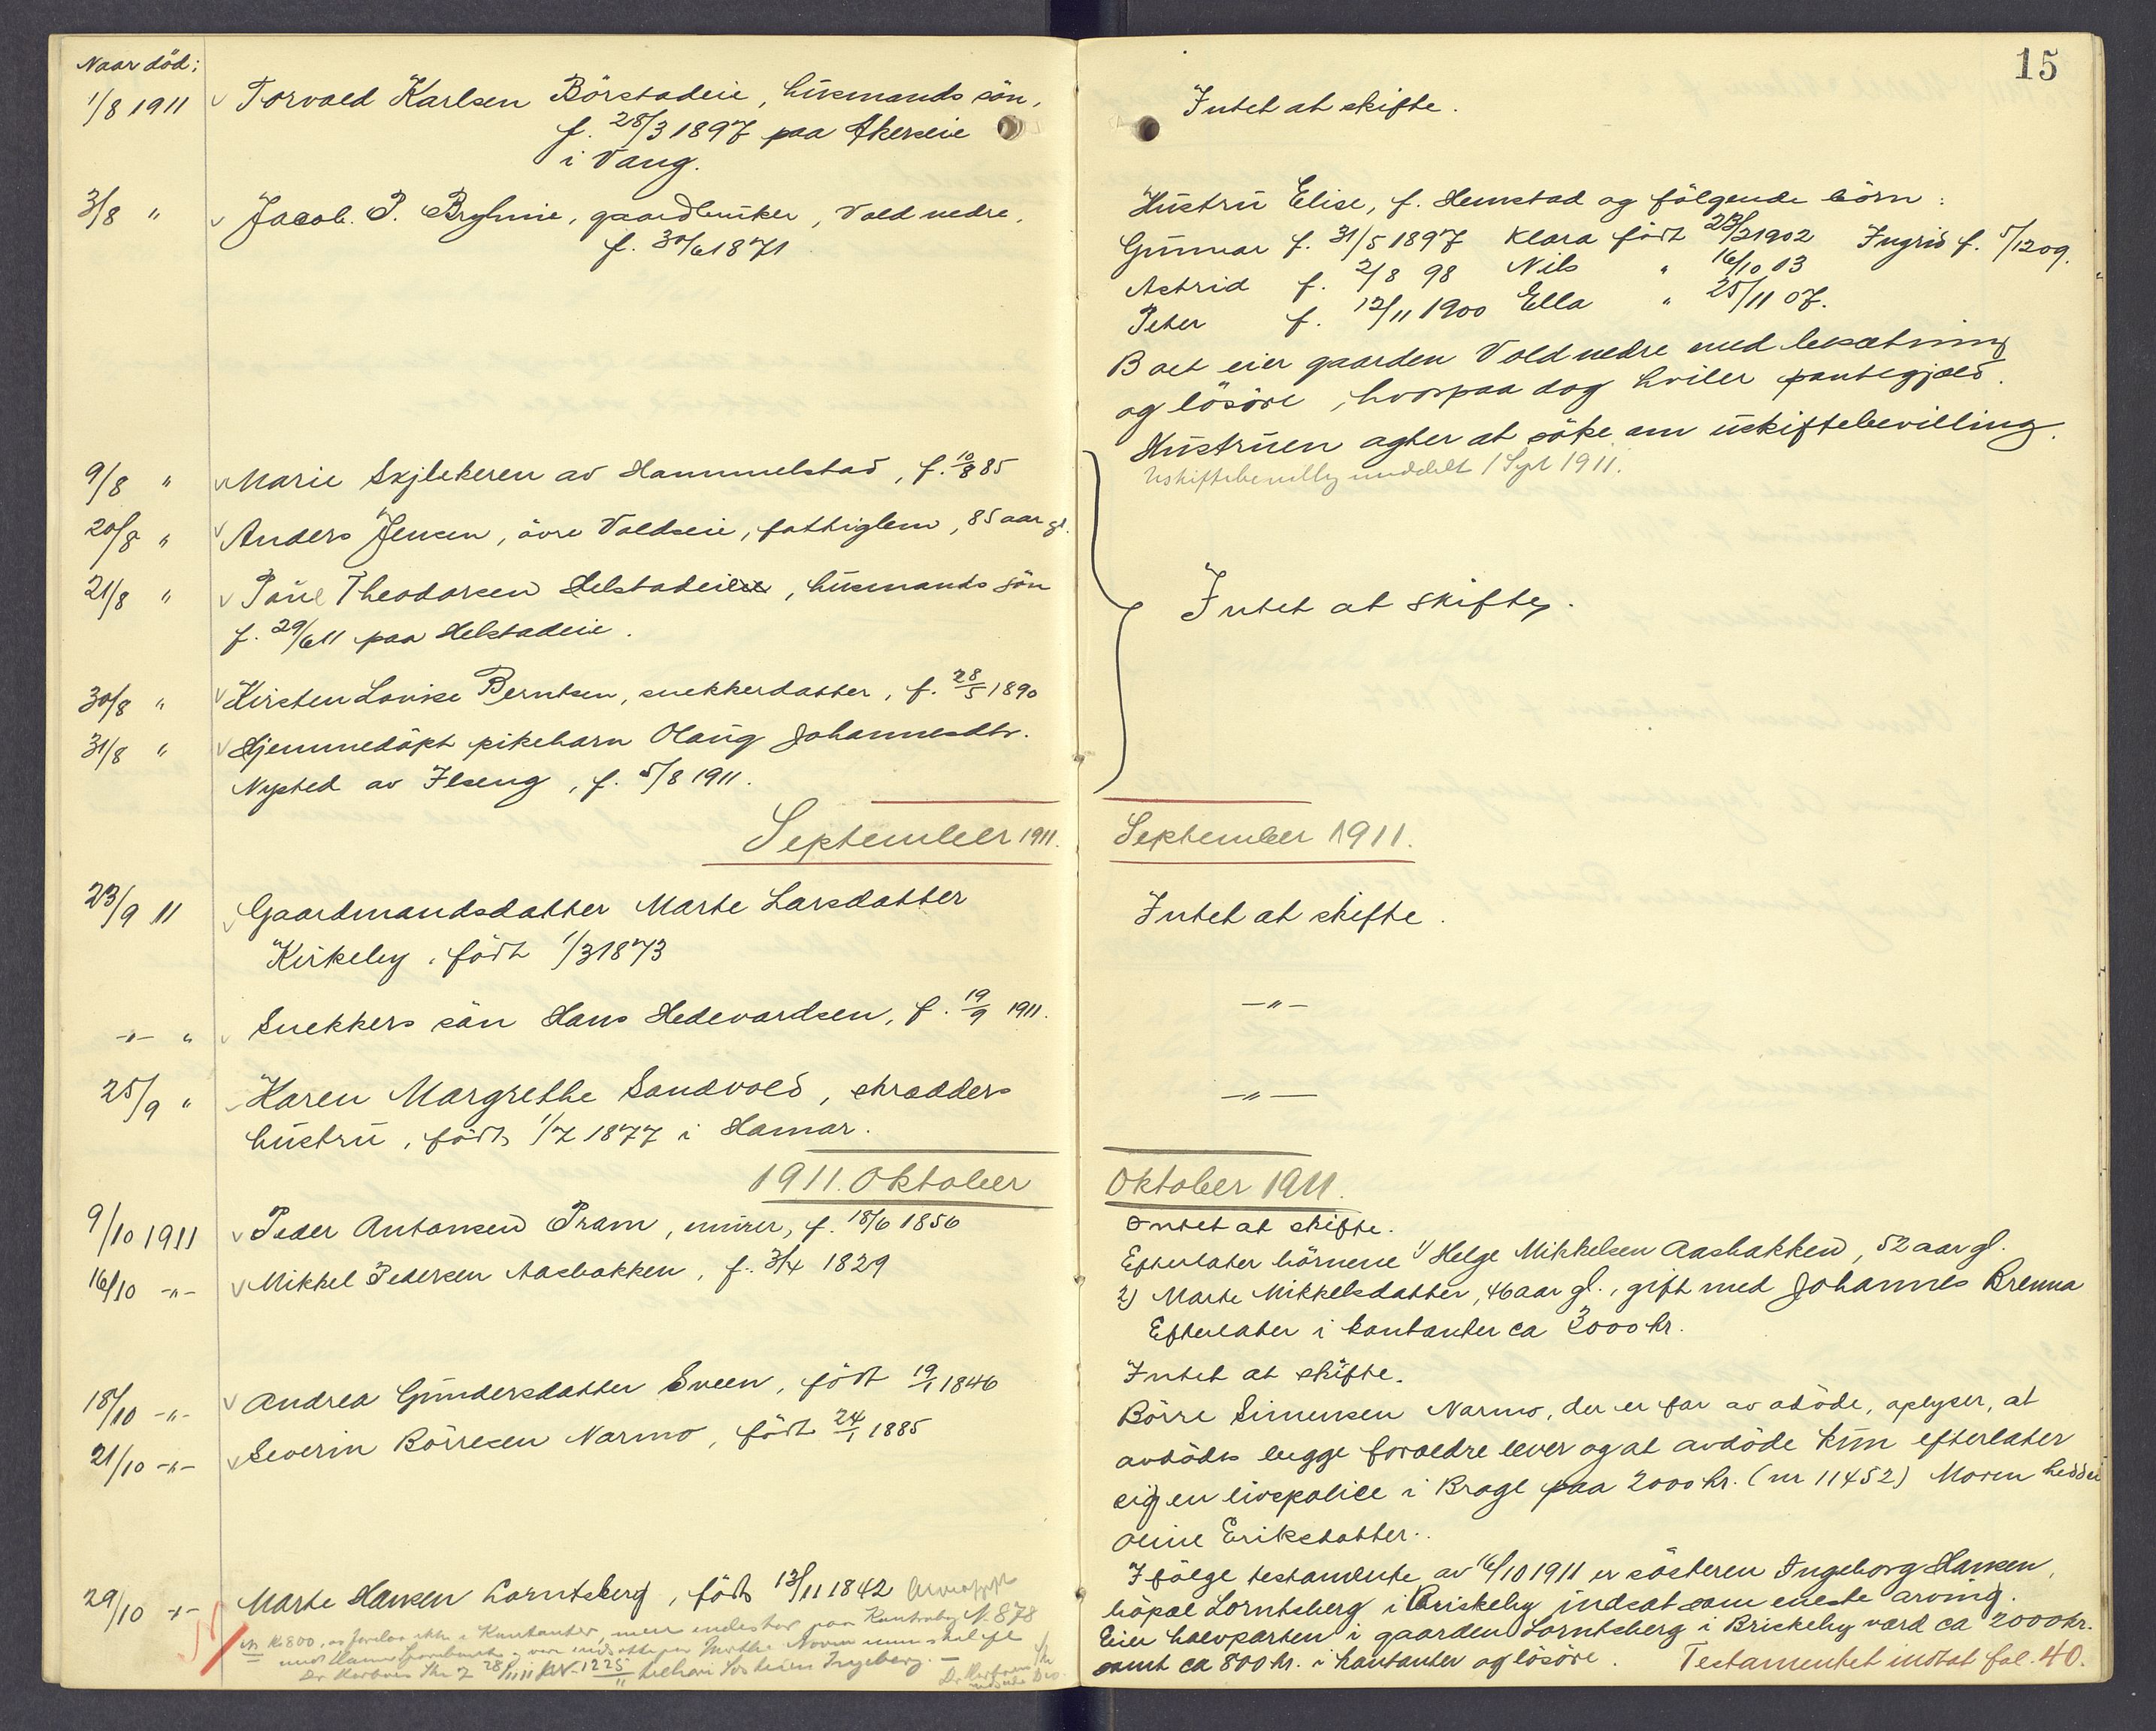 Naar död:
1/8 1911 Torvald Karlsen Börstadeie, husmands sön,
f. 28/3 1897 paa Akerseie
i Vang.
3/8 " Jacob. P. Bryhnie, gaardbruker, Vold nedre,
f. 30/6 1871
9/8 " Marie Skjlekeren av Hammelstad, f. 10/8 85
20/8 " Anders Jensen, övre Voldseie, fattiglem, 85 aar gl.
21/8 " Paul Theodorsen Helstadeie, husmands sön
f. 29/6 11 paa Helstadeie.
30/8 " Kirsten Lovise Berntsen, snekkerdatter, f. 28/5 1890
31/8 " Hjemmedöpt pikebarn Olaug Johannesdtr.
Nysted av Ilseng, f. 5/8 1911.
September 1911.
23/9 11 Gaardmandsdatter Marte Larsdatter
Kirkeby, födt 1/3 1873
-"- " Snekkers sön Hans Hedevardsen, f. 19/9 1911.
25/9 " Karen Margrethe Sandvold, skrædders
hustru, födt 1/7 1877 i Hamar.
1911. Oktober
9/10 1911 Peder Antonsen Pram, murer, f. 18/6 1856
16/10 -"- Mikkel Pedersen Aasbakken, f. 3/4 1829
18/10 -"- Andrea Gundersdatter Sveen, födt 19/1 1846
21/10 -"- Severin Börresen Narmo, födt 24/1 1885
29/10 -"- Marte Hansen Lorntsberg, födt 13/11 1842
Kr 800, av forelaa ikke i Kontanter, men indestaar paa Kontrabog N. 878
15
Intet at skifte.
Hustru Elise, f. Hemstad og fölgende börn:
Gunnar f. 31/5 1897 Klara födt 23/2 1902 Ingrid f. 5/12 09.
Astrid f. 2/8 98 Nils " 16/10 03
Peter f. 12/11 1900 Ella " 25/11 07.
Boet eier gaarden Vold nedre med besætning
og lösöre, hvorpaa dog hviler pantegjæld.
Hustruen agter at söke om uskiftebevilling.
Uskiftebevillg meddelt 1 Sept 1911.
Intet at skifte.
September 1911.
Intet at skifte.
-"-
-"-
Oktober 1911.
Intet at skifte.
Efterlater börnene 1) Helge Mikkelsen Aasbakken, 52 aar gl.
2) Marte Mikkelsdatter, 46 aar gl., gift med Johannes Brenna
Efterlater i kontanter ca 3000 kr.
Intet at skifte.
Börre Simensen Narmo, der er far av avdöde, oplyser, at
avdödes begge forældre lever og at avdöde kun efterlater
sig en livspolice i Brage paa 2000 kr. (nr 11452) Moren hedder
Oline Eriksdatter.
Ifölge testamente av 16/10 1911 er sösteren Ingeborg Hansen,
böpæl Lorntsberg i Briskeby indsat som eneste arving.
Eier halvparten i gaarden Lorntsberg i Briskeby værd ca 2000 kr.
samt ca 800 kr. i kontanter og lösöre. Testamentet indtat fol. 40.